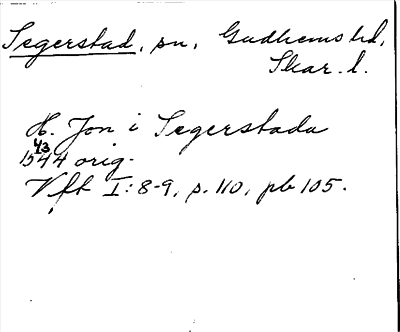 Segerstad, sn, Gudhems hd,
Skar. l.
H. Jon i Segerstada
43
1544 orig.
Vft I: 8-9, s. 110, pb 105.